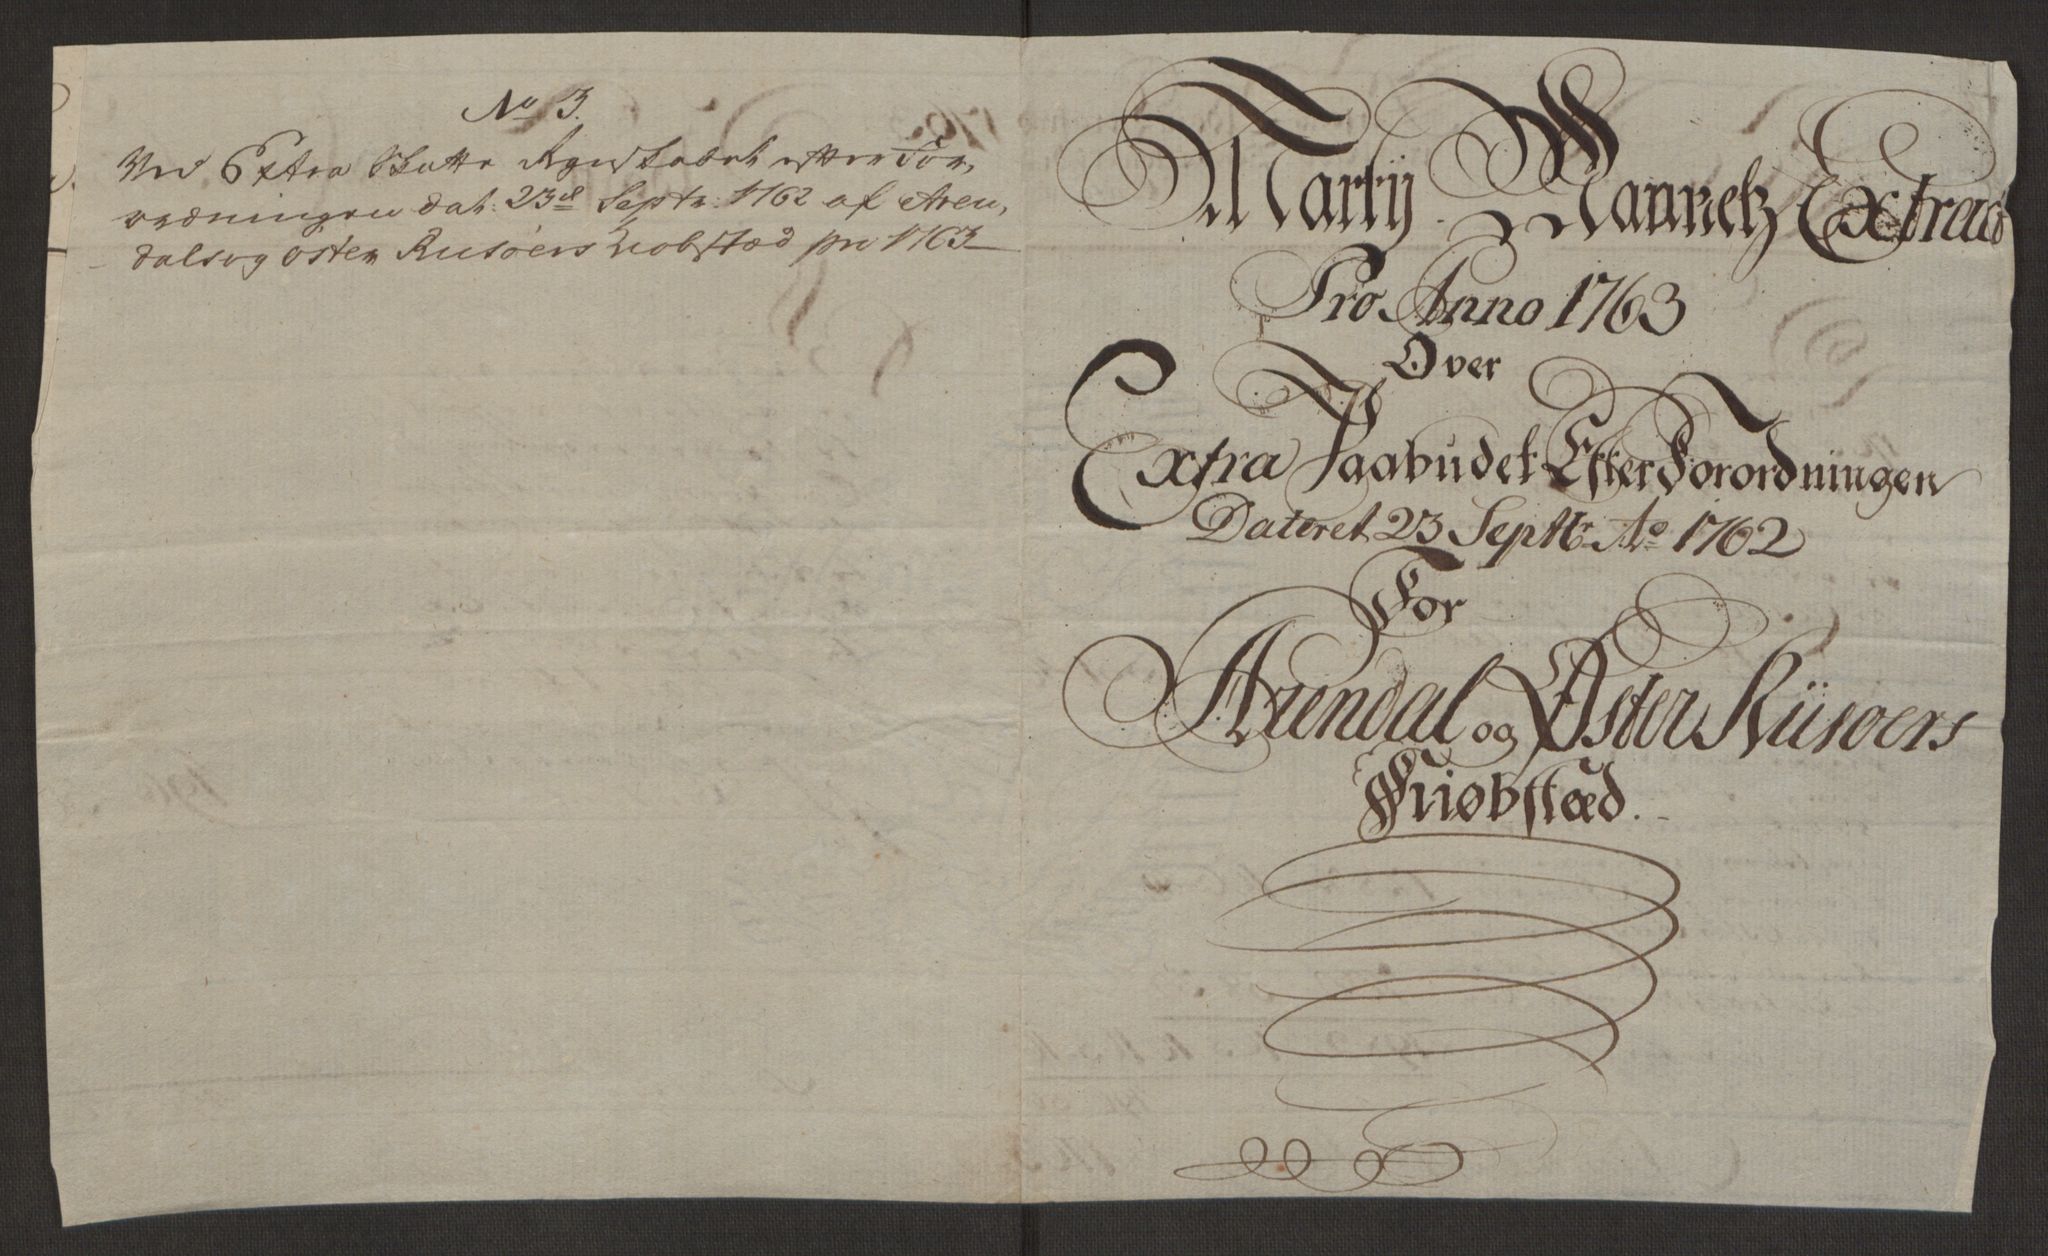 No 3.
Ved Extra Skatte Regnskabet efter For,
ordningen dat: 23d Septr: 1762 af Aren,
dals og öster Riisöers Kiobstæd pro 1763
Martij Maanetz Extract
Pro Anno 1763
Over
Extra Paabudet Efter Forordningen
Dateret 23 Septbr Ao 1762
For
Arendal og Øster Riisöers
Kiøbstæd.